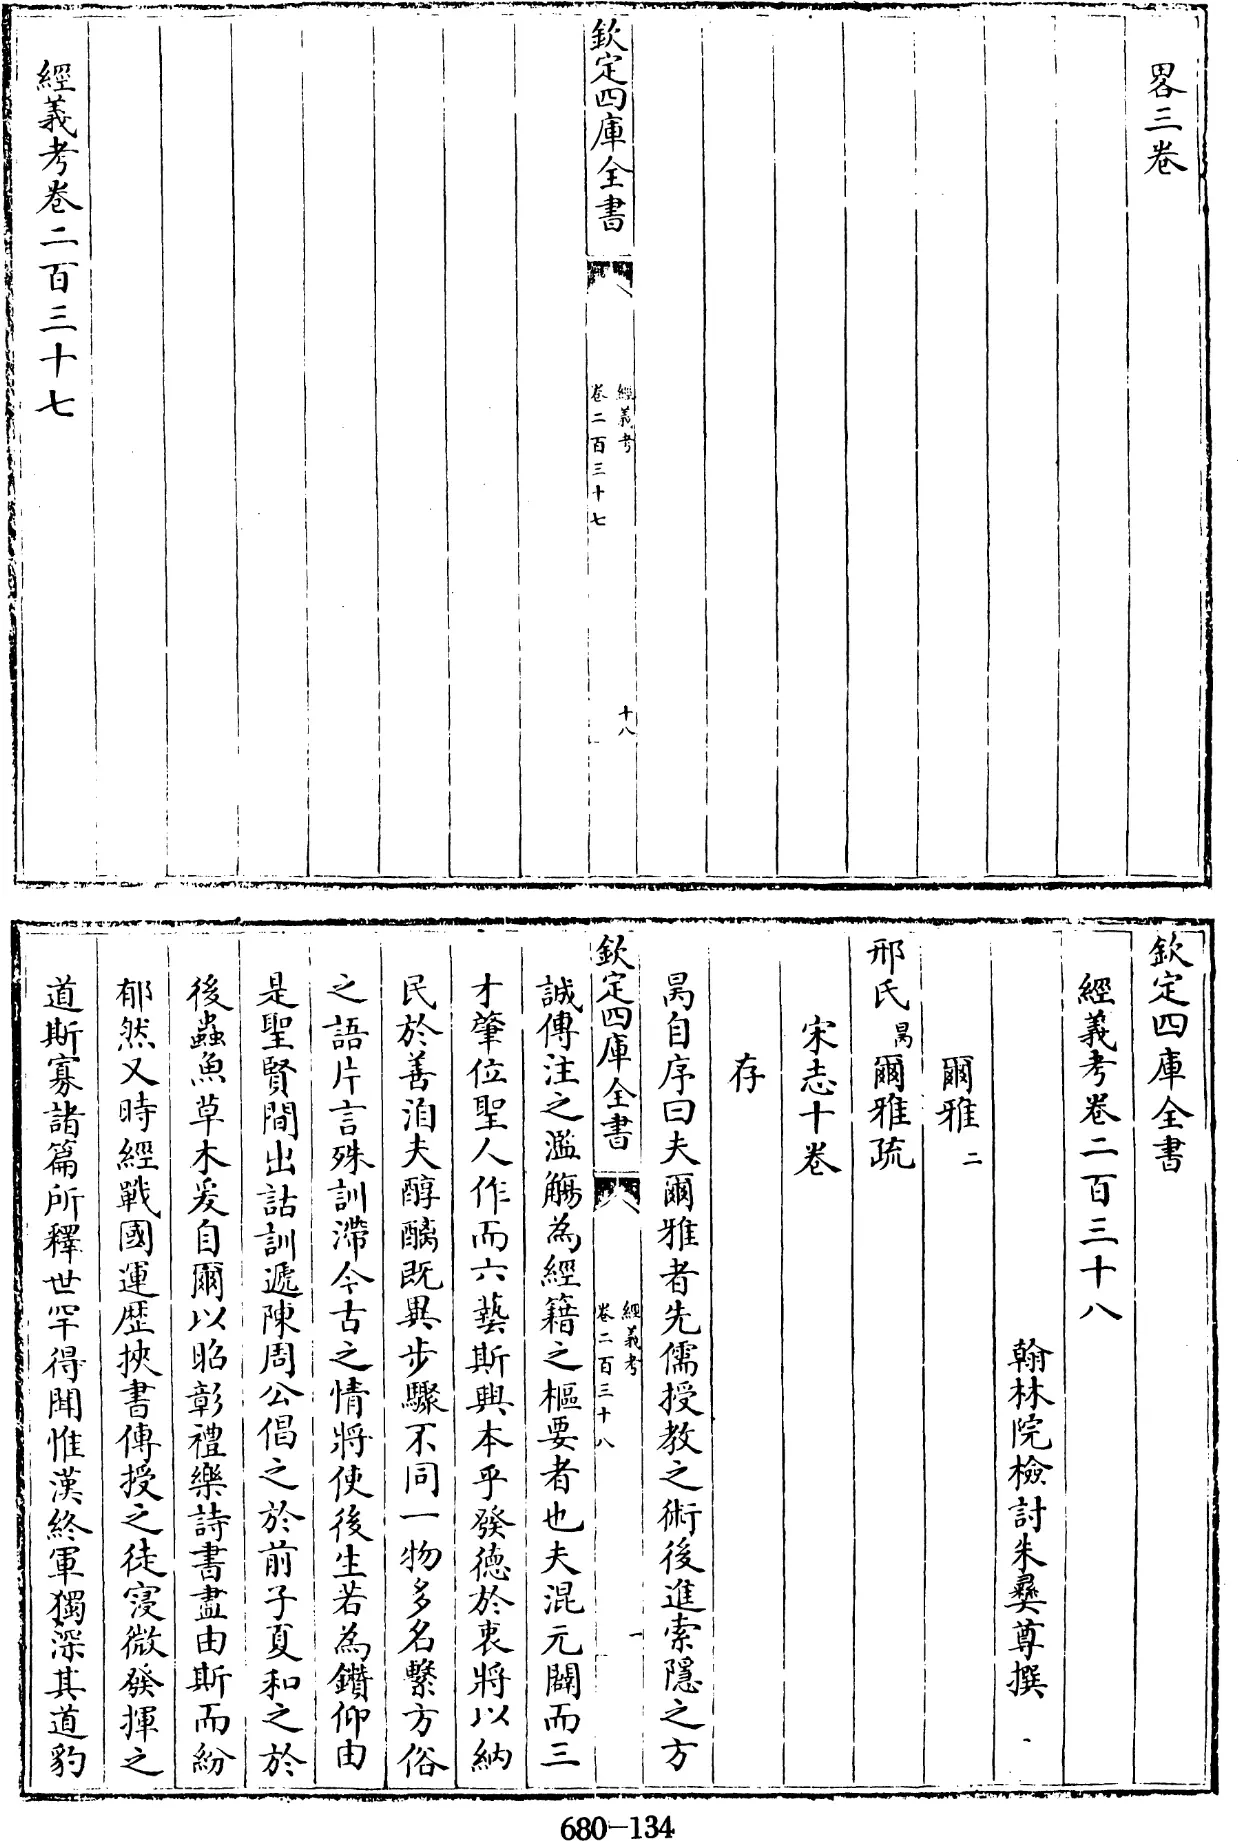 畧三卷
欽定四庫全書
經義考
卷二百三十七
十八
經義考卷二百三十七
欽定四庫全書
經義考卷二百三十八
翰林院檢討朱彝尊撰
爾雅二
邢氏昺爾雅疏
宋志十卷
存
昺自序曰夫爾雅者先儒授教之術後進索隱之方
欽定四庫全書
經義考
卷二百三十八
一
誠傳注之濫觴為經籍之樞要者也夫混元闢而三
才肇位聖人作而六藝斯興本乎發德於衷將以納
民於善洎夫醇醨既異步驟不同一物多名繫方俗
之語片言殊訓滯今古之情將使後生若為鑽仰由
是聖賢間出詁訓遞陳周公倡之於前子夏和之於
後蟲魚草木爰自爾以昭彰禮樂詩書盡由斯而紛
郁然又時經戰國運歴挾書傳授之徒寖微發揮之
道斯寡諸篇所釋世罕得聞惟漢終軍獨深其道豹
680-134